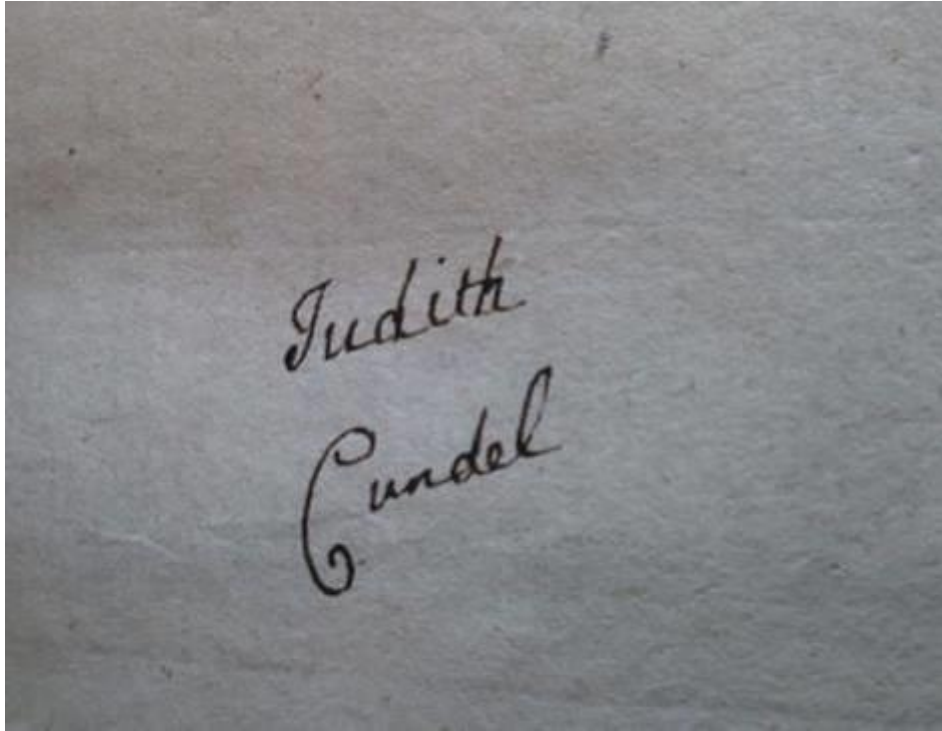 Judith
Cundel